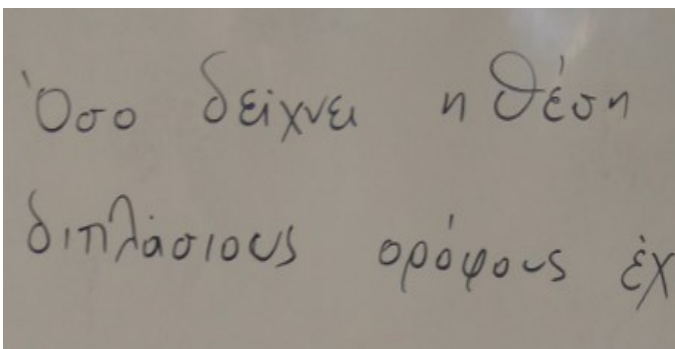 Όσο δείχνει η θέση
διπλάσιους ορόφους έχ